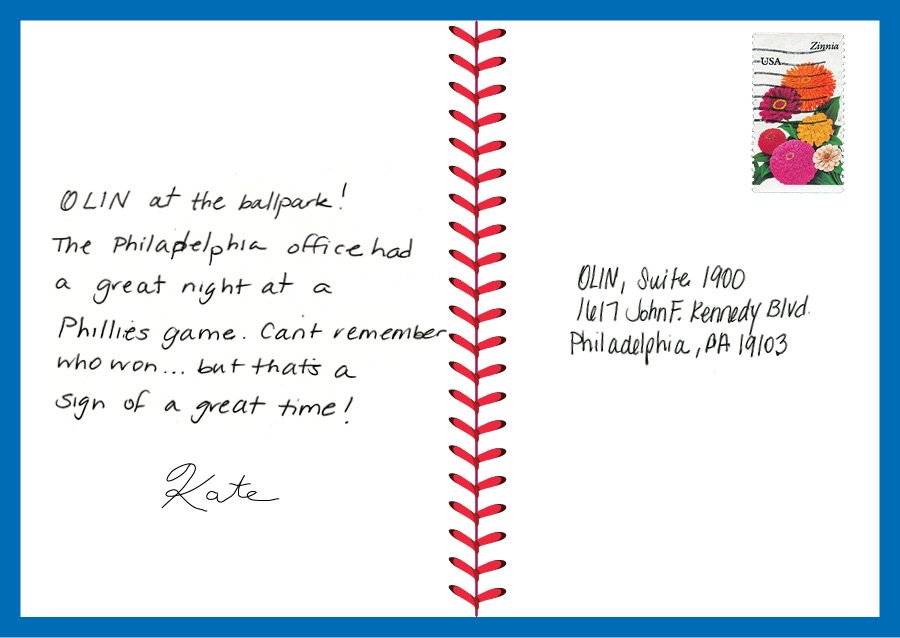 OLIN at the ballpark!
The Philadelphia office had
a great night at a
Phillies game. Can't remember
who won... but that's a
sign of a great time!
Kate
Zinnia
USA
OLIN, Suite 1900
1617 John F. Kennedy Blvd.
Philadelphia, PA 19103